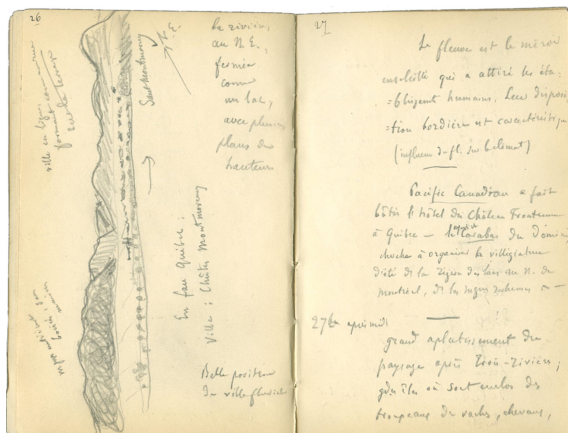 26
la rivière,
au N.E.,
fermée
comme
un lac,
avec plusieurs
plans de
hauteurs
N.E.
Saut Montmorency
ville en ligne
formant
En face Québec :
Ville : Chûtes Montmorency
Belle position
de ville fluviale
27
Le fleuve est le miroir
ensoleillé qui a attiré les éta-
=blissent humains. Leur disposi
=tion bordière est caractéristique
(influence du fl. sur le climat)
Pacific Canadian a fait
bâtir l'hôtel du Château Frontenac
à Québec – du Domini
cherche à organiser la villégiature
d'été de la région des lacs au N. de
Montréal, de la
27 après midi
grand aplatissement du
paysage après Trois-Rivières,
gdes îles où sont enclos des
troupeaux de vaches, chevaux,